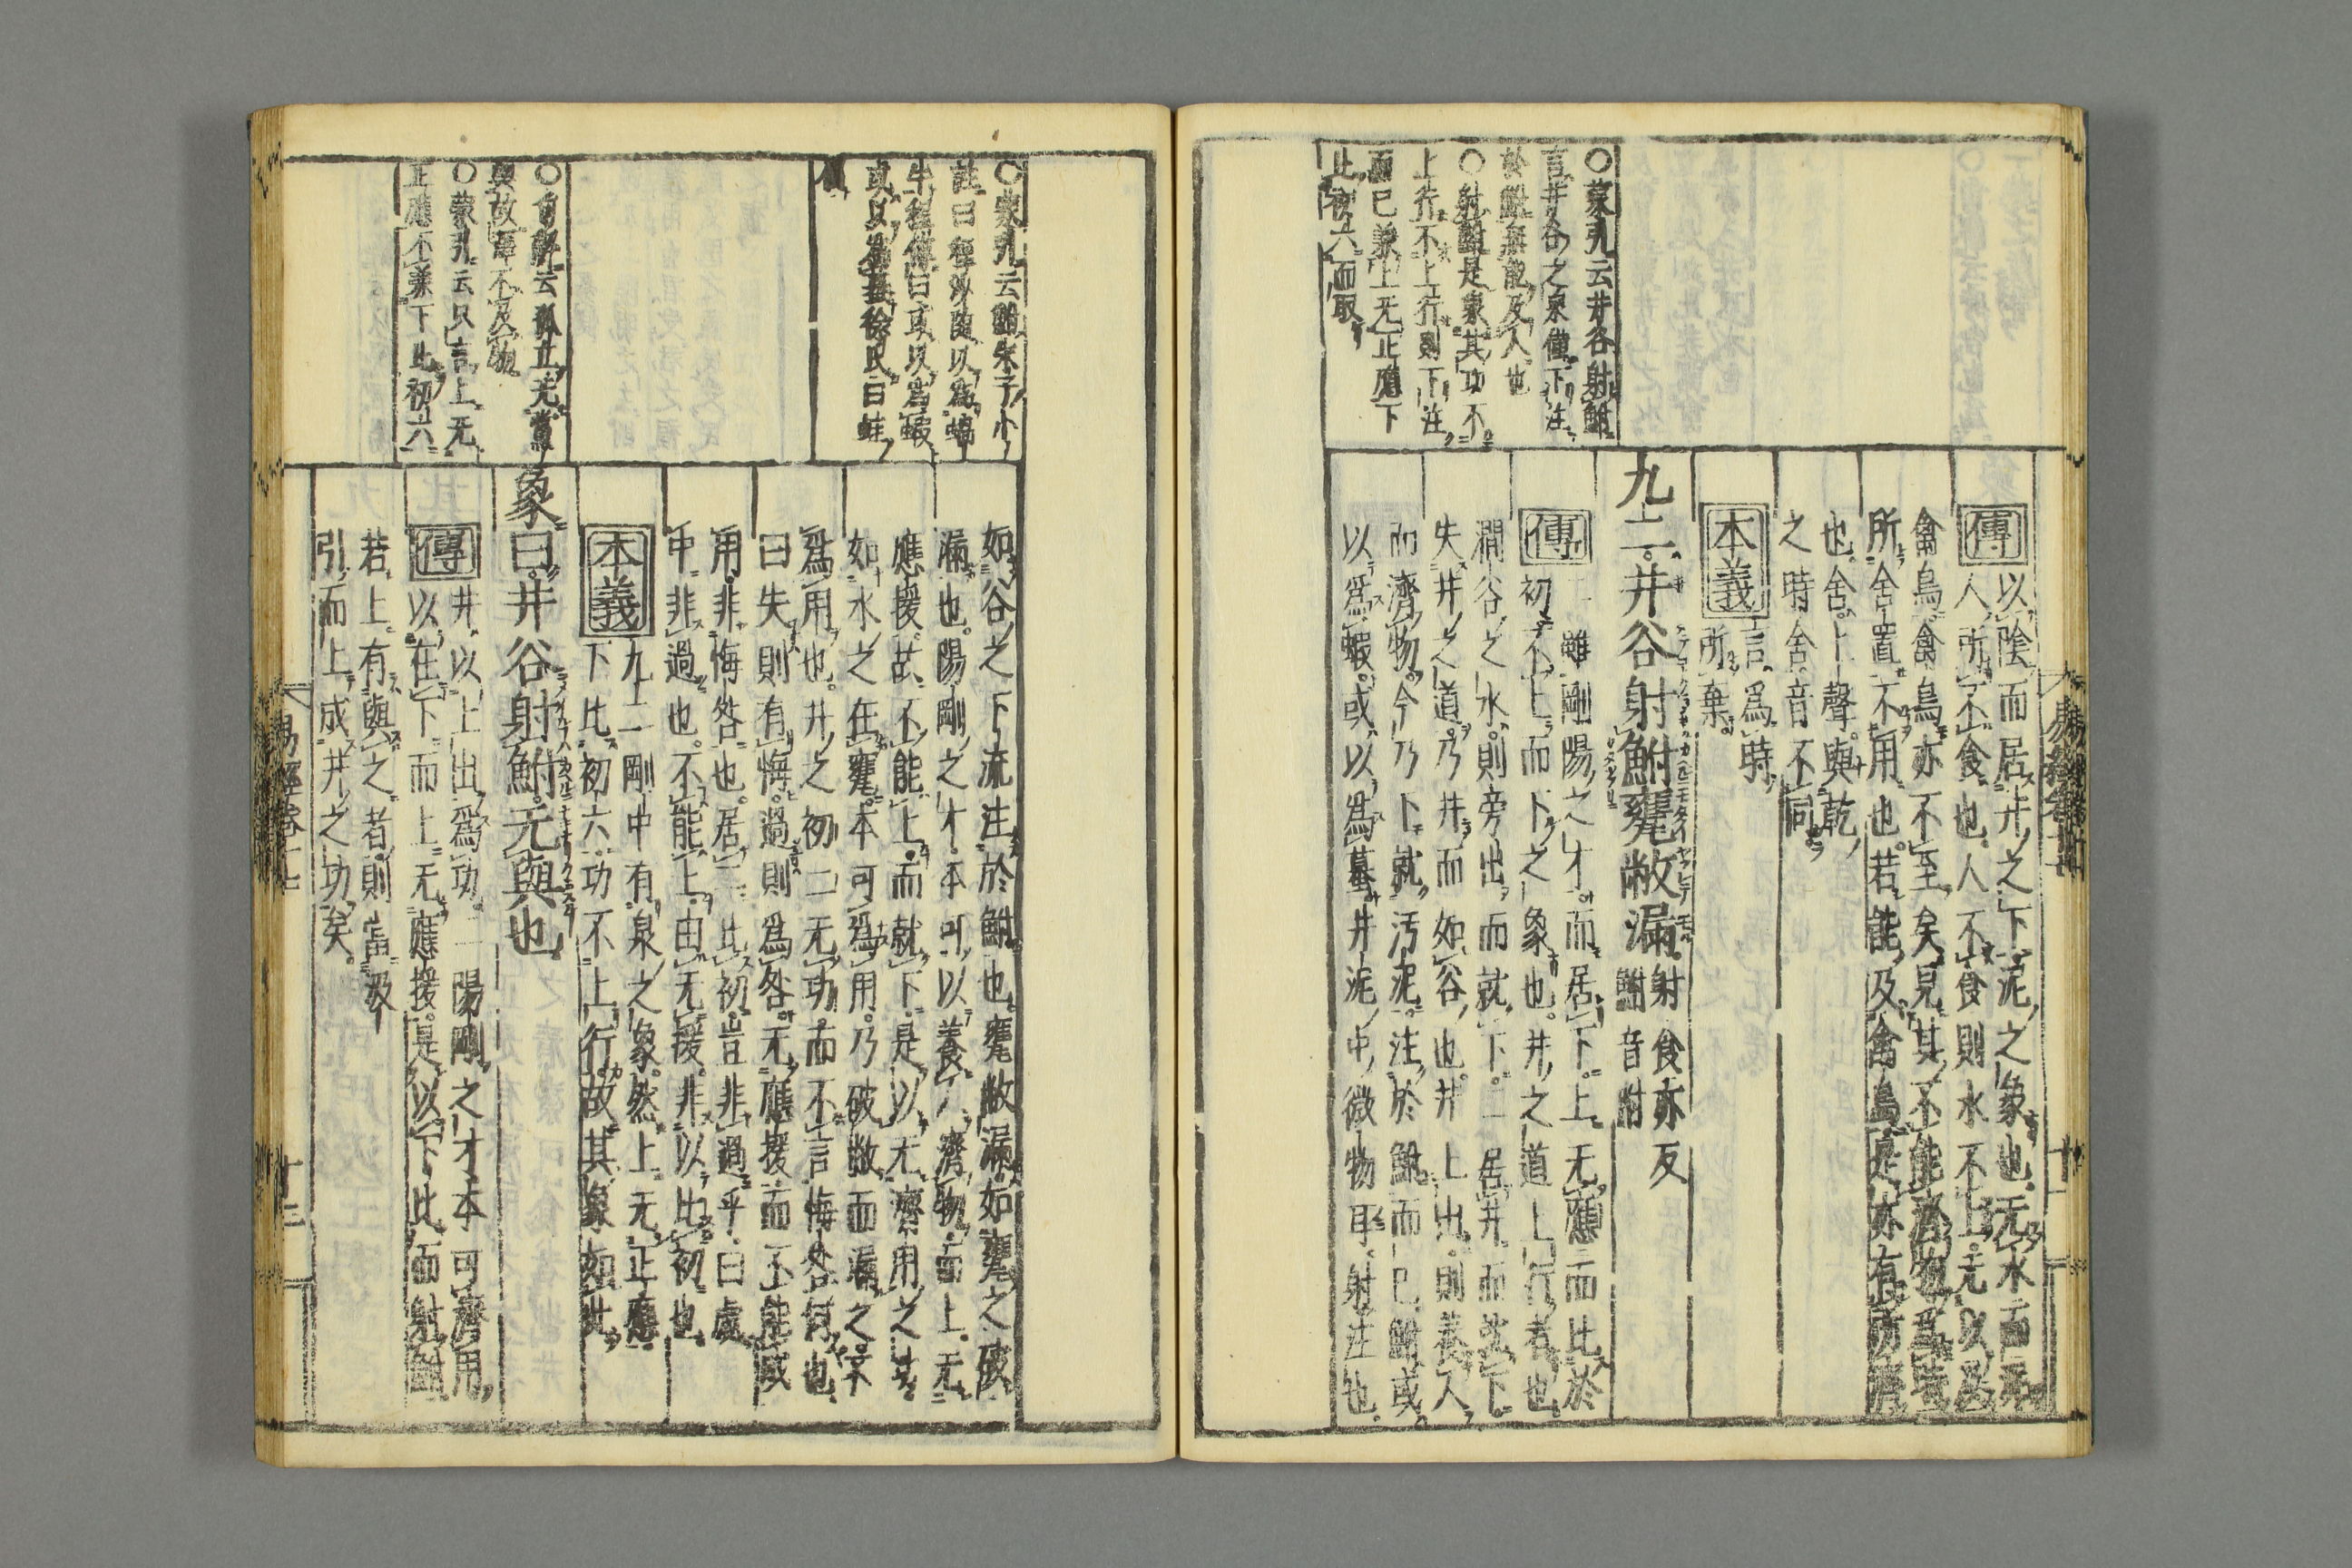 傳
以陰而居井之下泥之象也无水而泥
人所不食也人不食則水不上无以及
禽鳥禽鳥亦不至矣見其不能濟物爲時
所舍置不用也若能及禽鳥是亦有所濟
也舍上聲與乾
之時舍音不同
本義
言爲時
所棄
九二井谷射鮒甕敝漏
射食亦反
鮒音附
傳
二雖剛陽之才而居下上无應而比於
初不上而下之象也井之道上行者也
澗谷之水則旁出而就下二居井而就下
失井之道乃井而如谷也井上出則養人
而濟物今乃下就汚泥注於鮒而已鮒或
以爲蝦或以爲蟇井泥中微物耳射注也
○蒙引云井谷射鮒
言井谷之泉僅下注
於鮒無能及人也
○射鮒是泉其功不
上行不上行則下注
而已兼上无正應下
比初六而取
如谷之下流注於鮒也甕敝漏如甕之破
漏也陽剛之才本可以養人濟物而上无
應援故不能上而就下是以无濟用之功
如水之在甕本可爲用乃破敝而漏之不
爲用也井之初二无功而不言悔咎何也
曰失則有悔過則爲咎无應援而不能成
用非悔咎也居二比初豈非過乎曰處
中非過也不能上由无援非以比初也
本義
九二剛中有泉之象然上无正應
下比初六功不上行故其象如此
象曰井谷射鮒无與也
傳
井以上出爲功二陽剛之才本可濟用
以在下而上无應援是以下比而射鮒
若上有與之者則當汲
引而上成井之功矣
○蒙引云鮒朱子小
註曰程沙随以爲蝸
牛程傳曰或以爲蝦
或以爲蟇徐氏曰蛙
○
云孤立无黨
與故澤不及物
○蒙引云只言上无
正應不兼下比初六
易經卷十七
十三